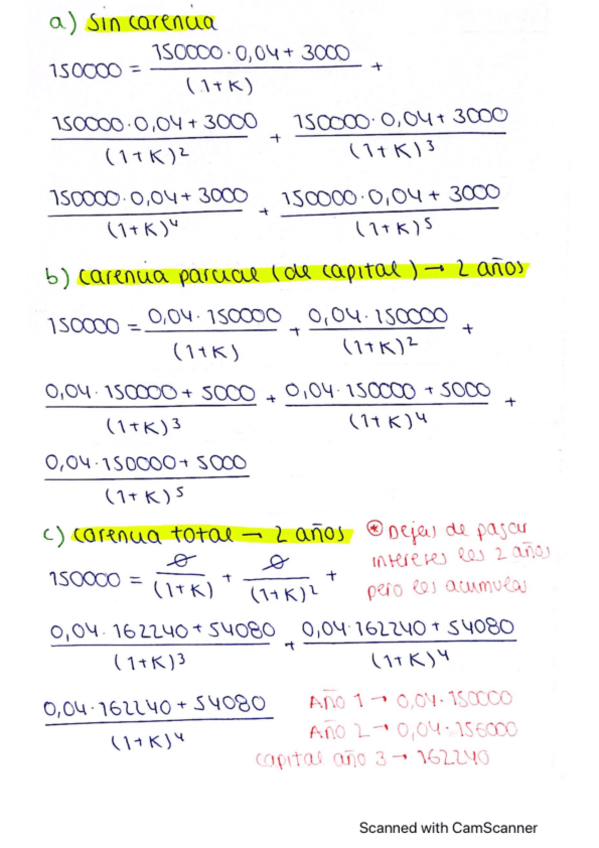 a) Sin carencia
150000 = 150000·0,04 + 3000 / (1+K) +
150000·0,04 + 3000 / (1+K)2 + 150000·0,04 + 3000 / (1+K)3
150000·0,04 + 3000 / (1+K)4 + 150000·0,04 + 3000 / (1+K)5
b) carencia parcial (de capital) → 2 años
150000 = 0,04·150000 / (1+K) + 0,04·150000 / (1+K)2 +
0,04·150000 + 5000 / (1+K)3 + 0,04·150000 + 5000 / (1+K)4 +
0,04·150000 + 5000 / (1+K)5
c) carencia total → 2 años
* Dejas de pagar
intereses los 2 años
pero los acumulas
150000 = 0 / (1+K) + 0 / (1+K)2 +
0,04·162240 + 54080 / (1+K)3 + 0,04·162240 + 54080 / (1+K)4
0,04·162240 + 54080 / (1+K)4
Año 1 → 0,04·150000
Año 2 → 0,04·156000
capital año 3 → 162240
Scanned with CamScanner